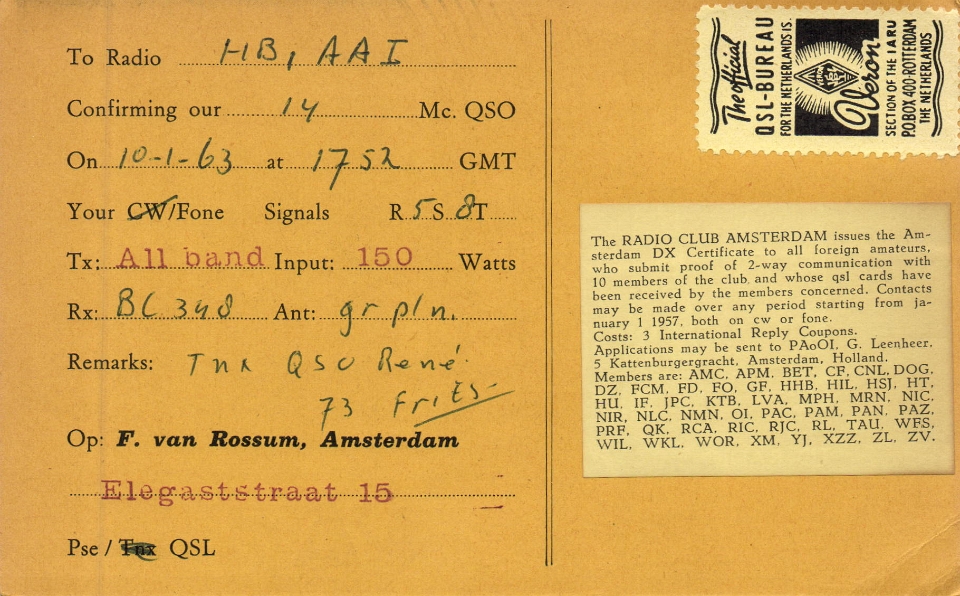 To Radio HB1AAI
Confirming our 14 Mc. QSO
On 10-1-63 at 1752 GMT
Your CW/Fone Signals R5S8T
Tx: All band Input: 150 Watts
Rx: BC 348 Ant: gr pln.
Remarks: Tnx QSO René
73 Fries
Op: F. van Rossum, Amsterdam
Elegaststraat 15
Pse / Tnx QSL
The official
QSL-BUREAU
FOR THE NETHERLANDS IS.
Veron
SECTION OF THE IARU
P.O.BOX 400-ROTTERDAM
THE NETHERLANDS
The RADIO CLUB AMSTERDAM issues the Am-
sterdam DX Certificate to all foreign amateurs,
who submit proof of 2-way communication with
10 members of the club and whose qsl cards have
been received by the members concerned. Contacts
may be made over any period starting from ja-
nuary 1 1957, both on cw or fone.
Costs: 3 International Reply Coupons.
Applications may be sent to PAoOI, G. Leenheer.
5 Kattenburgergracht, Amsterdam, Holland.
Members are: AMC, APM, BET, CF, CNL, DOG,
DZ, FCM, FD, FO, GF, HHB, HIL, HSJ, HT,
HU, IF, JPC, KTB, LVA, MPH, MRN, NIC,
NIR, NLC, NMN, OI, PAC, PAM, PAN, PAZ,
PRF, QK, RCA, RIC, RJC, RL, TAU, WFS,
WIL, WKL, WOR, XM, YJ, XZZ, ZL, ZV.